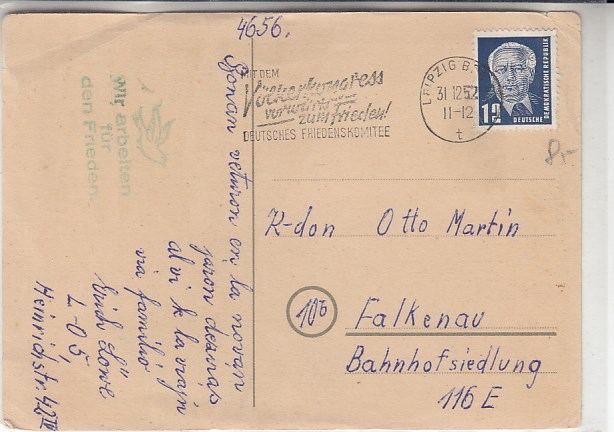 4656.
Bonan veturon en la novan
jaron deziras
al vi k la viajn
via familio
Erich Löwe
L-O5,
Heinrichstr. 42 IV
Wir arbeiten
für
den Frieden.
MIT DEM
Völkerkongress
vorwärts
zum Frieden!
DEUTSCHES FRIEDENSKOMITEE
LEIPZIG
31.12.52
11-12
t
12
DEUTSCHE
DEMOKRATISCHE REPUBLIK
8,-
K-don Otto Martin
10b
Falkenau
Bahnhofsiedlung
116 E